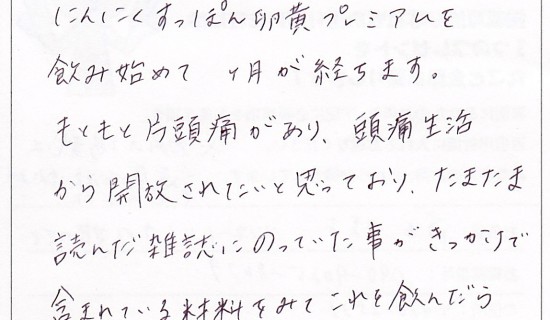 にんにくすっぽん卵黄プレミアムを
飲み始めて ヶ月が経ちます。
もともと片頭痛があり、頭痛生活
から開放されたいと思っており、たまたま
読んだ雑誌にのっていた事がきっかけで
含まれている材料をみてこれを飲んだら